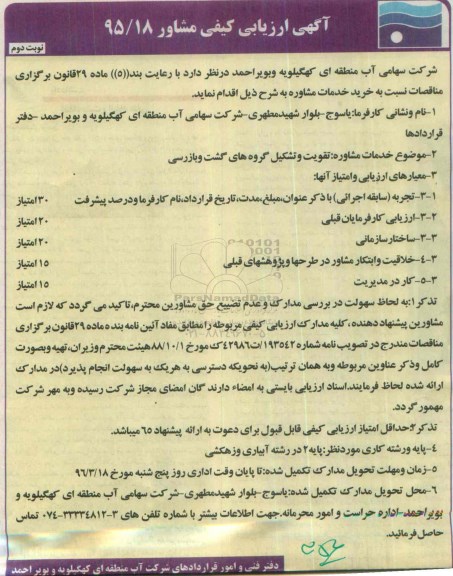 آگهی ارزیابی کیفی مشاور ۹۵/۱۸
نوبت دوم
شرکت سهامی آب منطقه ای کهگیلویه وبویراحمد درنظر دارد با رعایت بند((۵)) ماده ۲۹قانون برگزاری
مناقصات نسبت به خرید خدمات مشاوره به شرح ذیل اقدام نماید.
۱-نام ونشانی کارفرما:یاسوج-بلوار شهیدمطهری-شرکت سهامی آب منطقه ای کهگیلویه و بویراحمد -دفتر
قراردادها
۲-موضوع خدمات مشاوره:تقویت وتشکیل گروه های گشت وبازرسی
۳-معیارهای ارزیابی وامتیاز آنها:
۳-۱-تجربه (سابقه اجرائی) با ذکر عنوان،مبلغ،مدت،تاریخ قرارداد،نام کارفرما ودرصد پیشرفت ۳۰امتیاز
۳-۲-ارزیابی کارفرمایان قبلی ۲۰امتیاز
۳-۳-ساختارسازمانی ۲۰امتیاز
۳-۴-خلاقیت وابتکار مشاور در طرحها وپژوهشهای قبلی ۱۵امتیاز
۳-۵-کار در مدیریت ۱۵امتیاز
تذکر۱:به لحاظ سهولت در بررسی مدارک و عدم تضییع حق مشاورین محترم،تاکید می گردد که لازم است
مشاورین پیشنهاد دهنده ،کلیه مدارک ارزیابی کیفی مربوطه را مطابق مفاد آئین نامه بند ه ماده ۲۹قانون برگزاری
مناقصات مندرج در تصویب نامه شماره ۱۹۳۵۴۲/ت۴۲۹۸۶ک مورخ ۸۸/۱۰/۱هیئت محترم وزیران،تهیه وبصورت
کامل وذکر عناوین مربوطه وبه همان ترتیب(به نحویکه دسترسی به هریک به سهولت انجام پذیرد)در مدارک
ارائه شده لحاظ فرمایند.اسناد ارزیابی بایستی به امضاء دارند گان امضای مجاز شرکت رسیده وبه مهر شرکت
مهمور گردد.
تذکر۲:حداقل امتیاز ارزیابی کیفی قابل قبول برای دعوت به ارائه پیشنهاد ۶۵ میباشد.
۴-پایه ورشته کاری موردنظر:پایه ۲ در رشته آبیاری وزهکشی
۵-زمان ومهلت تحویل مدارک تکمیل شده:تا پایان وقت اداری روز پنج شنبه مورخ ۹۶/۳/۱۸
۶-محل تحویل مدارک تکمیل شده:یاسوج-بلوار شهیدمطهری-شرکت سهامی آب منطقه ای کهگیلویه و
بویراحمد-اداره حراست و امور محرمانه.جهت اطلاعات بیشتر با شماره تلفن های ۳-۳۳۳۳۴۸۱۲-۰۷۴ تماس
حاصل فرمائید.
دفتر فنی و امور قراردادهای شرکت آب منطقه ای کهگیلویه و بویر احمد